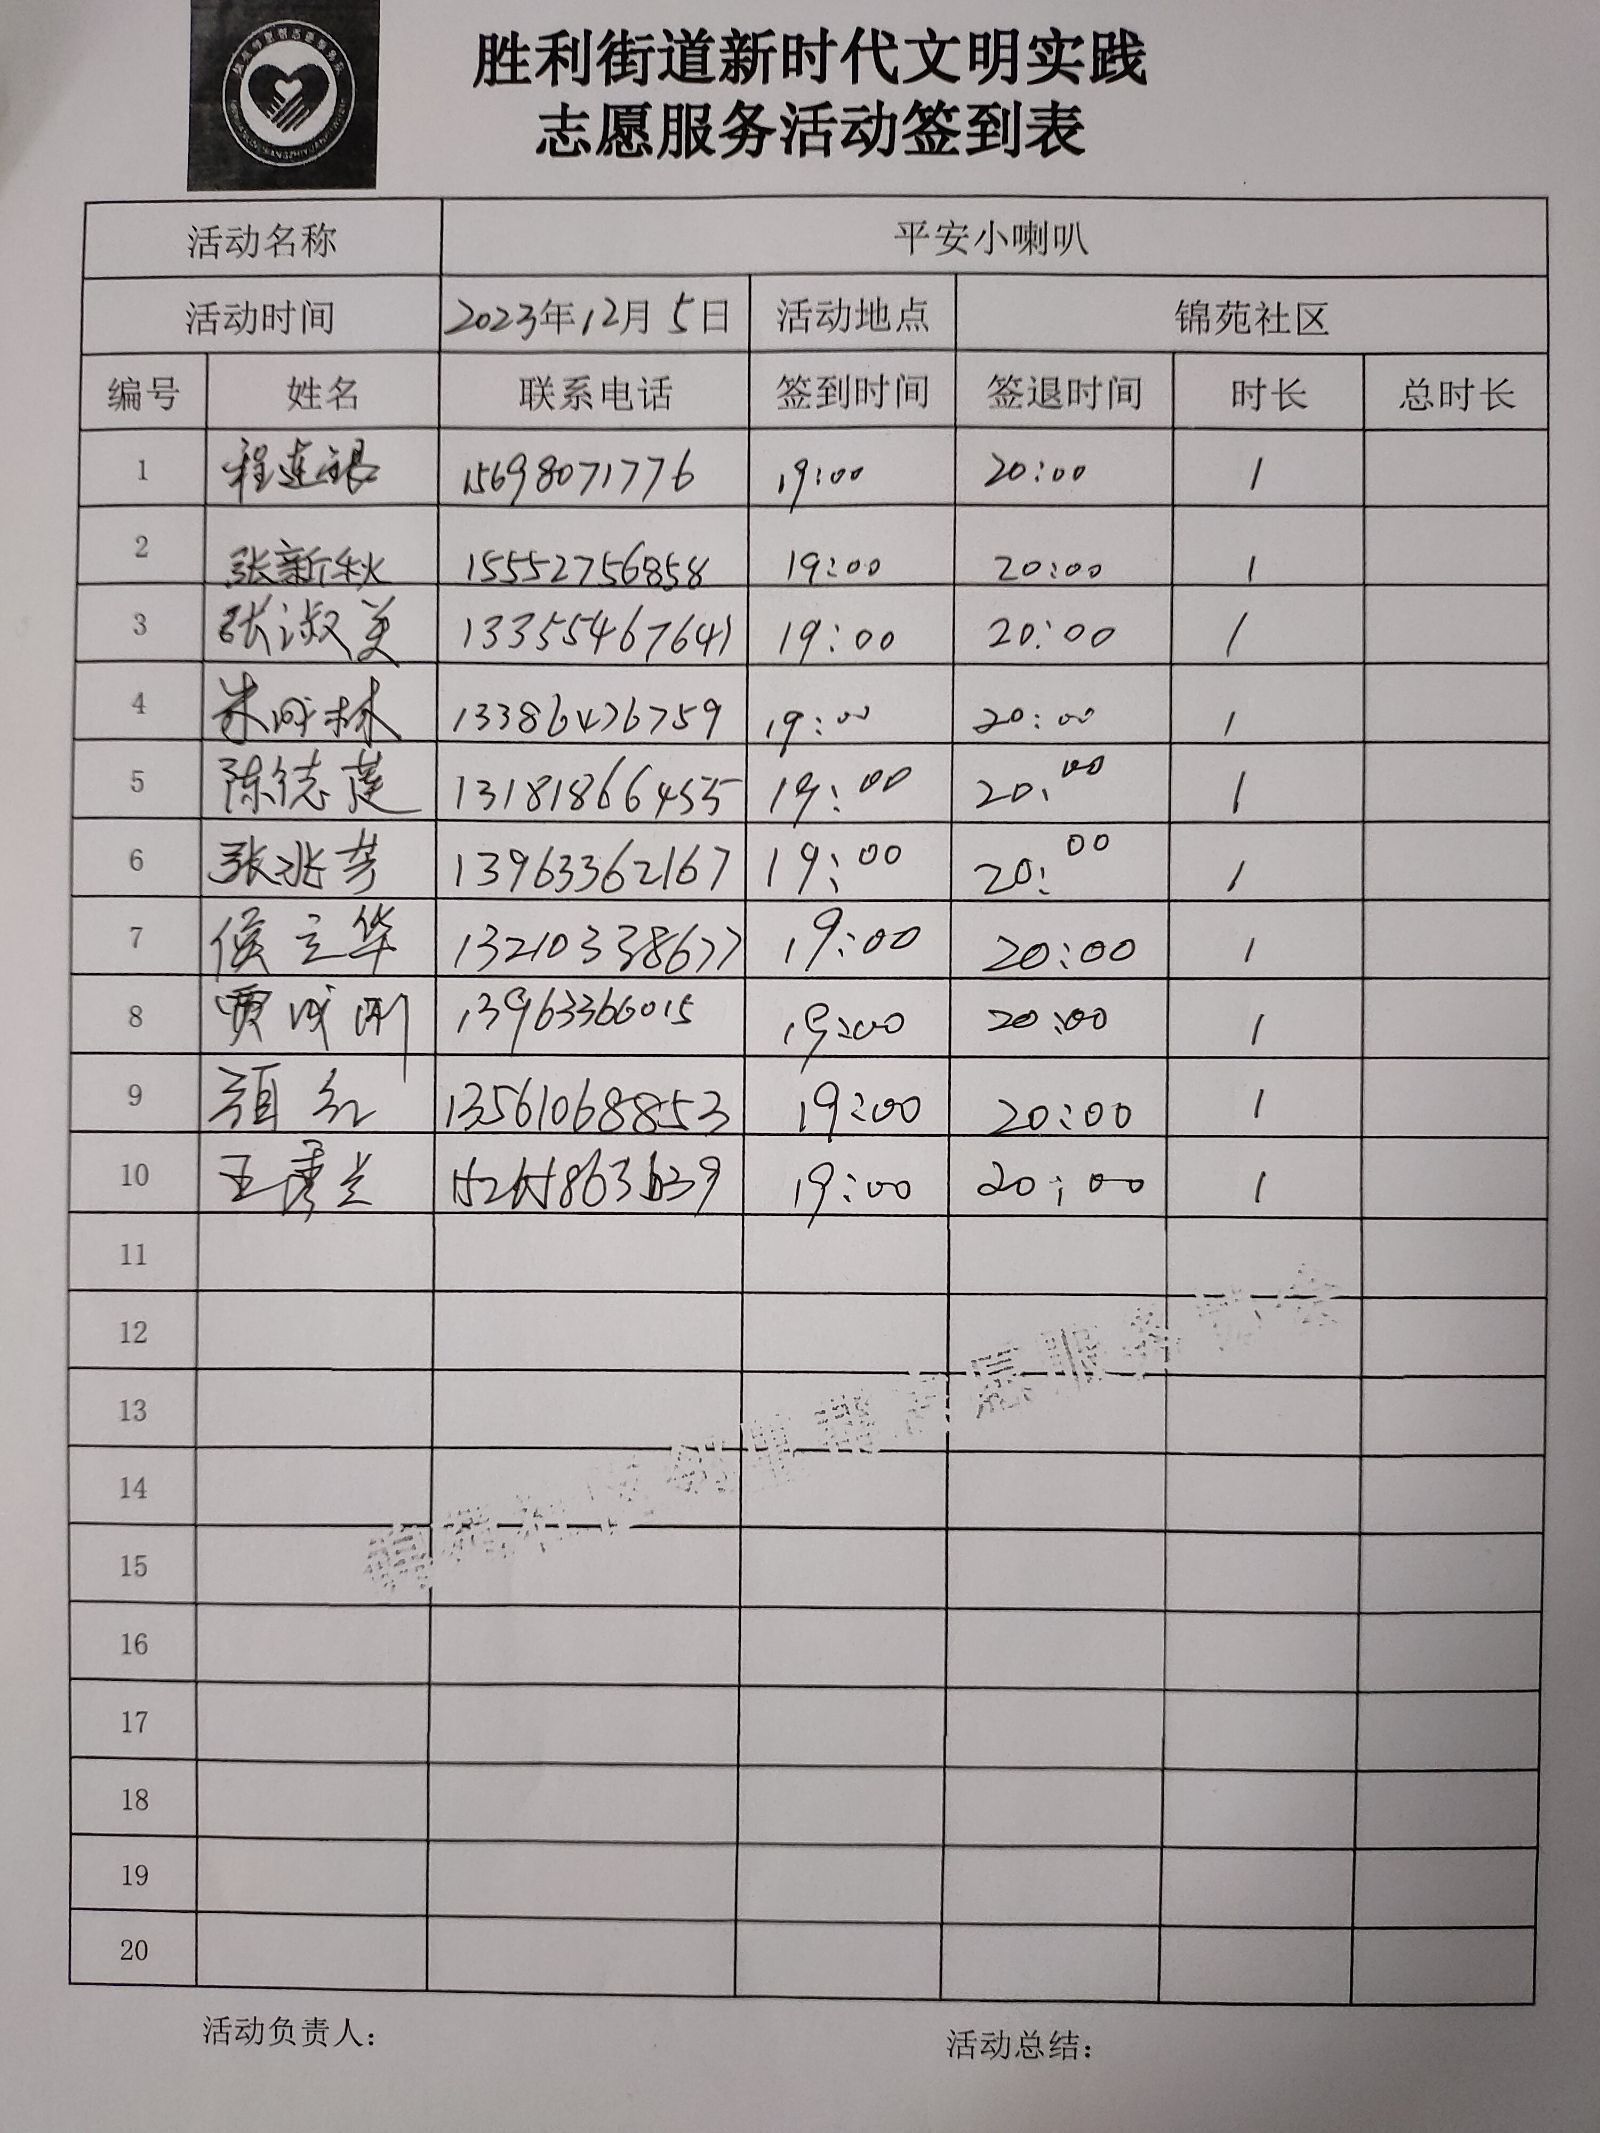 胜利街道新时代文明实践
志愿服务活动签到表
活动名称 平安小喇叭
活动时间 2023年12月5日 活动地点 锦苑社区
编号 姓名 联系电话 签到时间 签退时间 时长 总时长
1 程连银 15698071776 19:00 20:00 1
2 张新秋 15552756858 19:00 20:00 1
3 张淑美 13355467641 19:00 20:00 1
4 朱成林 13386476759 19:00 20:00 1
5 陈德莲 13181866455 19:00 20:00 1
6 张兆芳 13963362167 19:00 20:00 1
7 侯立华 13210338677 19:00 20:00 1
8 贾成刚 13963366015 19:00 20:00 1
9 红 13561068853 19:00 20:00 1
10 王秀兰 19:00 20:00 1
11
12
13
14
15
16
17
18
19
20
活动负责人： 活动总结：